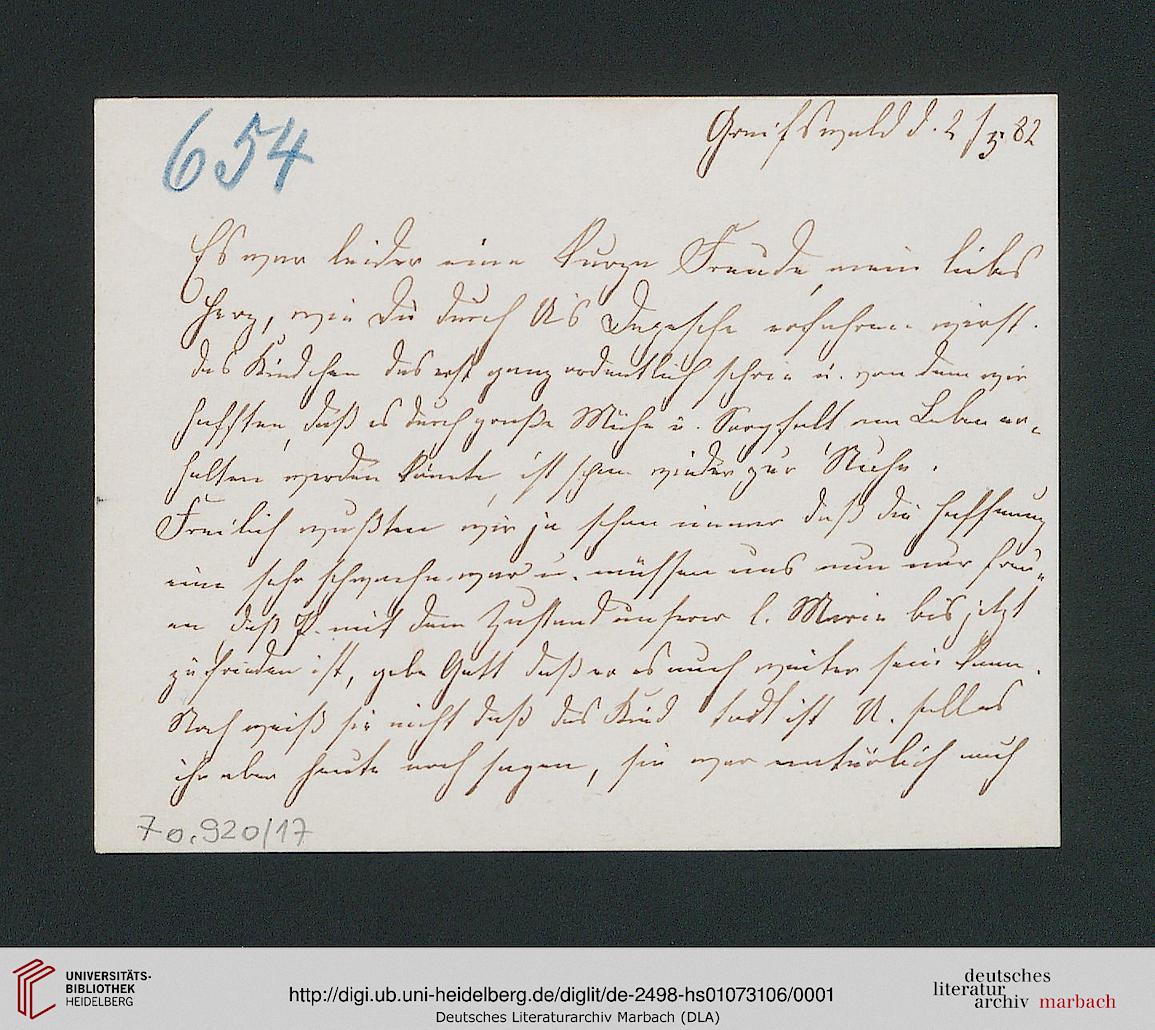 654
Greifswald d. 2/5 82
Es war leider eine kurze Freude, mein liebes
Herz, wie Du durch U's Depesche erfahren wirst.
das Kindchen das erst ganz ordentlich schrie u. von dem wir
hofften, daß es durch große Mühe u. Sorgfalt am Leben er-
halten werden könnte, ist schon wieder zur Ruhe.
Freilich wußten wir ja schon immer daß die Hoffnung
eine sehr schwache war u. müssen uns nun nur freu-
en, daß P. mit dem Zustand unserer l. Marie bis jetzt
zufrieden ist, gebe Gott daß er es auch weiter sein kann.
Noch weiß sie nicht daß das Kind todt ist U. soll es
ihr aber heute noch sagen, sie war natürlich auch
70.920/17
UNIVERSITÄTS-
BIBLIOTHEK
HEIDELBERG
http://digi.ub.uni-heidelberg.de/diglit/de-2498-hs01073106/0001
Deutsches Literaturarchiv Marbach (DLA)
deutsches
literatur
archiv marbach